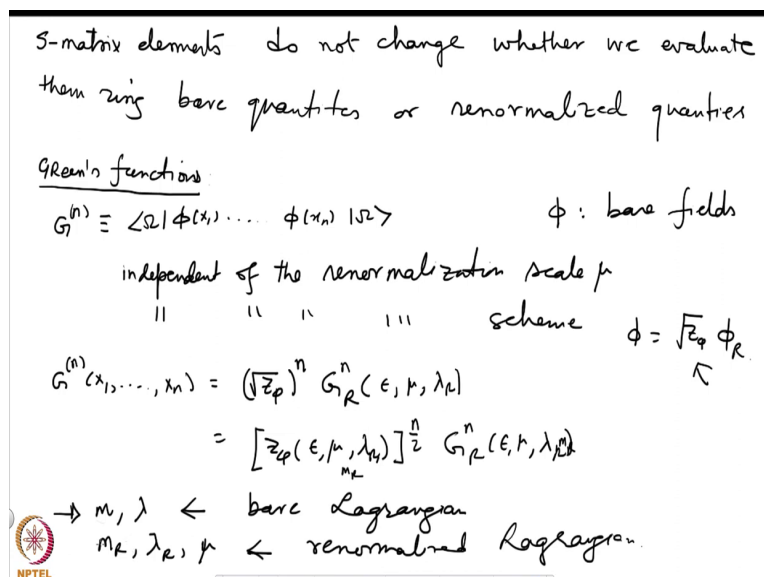 S-matrix elements do not change whether we evaluate
them using bare quantites or renormalized quanties
GReen's functions
G^(n) ≡ <Ω| φ(x₁) ..... φ(xₙ) |Ω> φ : bare fields
independent of the renormalization scale μ
" " " " scheme φ = √Z_φ φ_R
G^(n)(x₁, ...., xₙ) = (√Z_φ)^n G_R^n (ε, μ, λ_R)
= [Z_φ(ε, μ, λ_R, m_R)]^(n/2) G_R^n (ε, μ, λ_R, m_R)
→ m, λ ← bare Lagrangian
m_R, λ_R, μ ← renormalized Lagrangian.
NPTEL